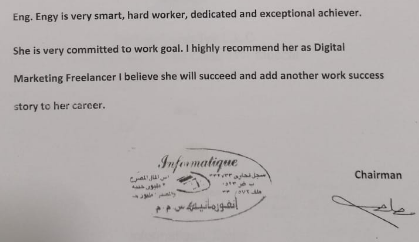 Eng. Engy is very smart, hard worker, dedicated and exceptional achiever.
She is very committed to work goal. I highly recommend her as Digital
Marketing Freelancer I believe she will succeed and add another work success
story to her career.
Informatique
Chairman